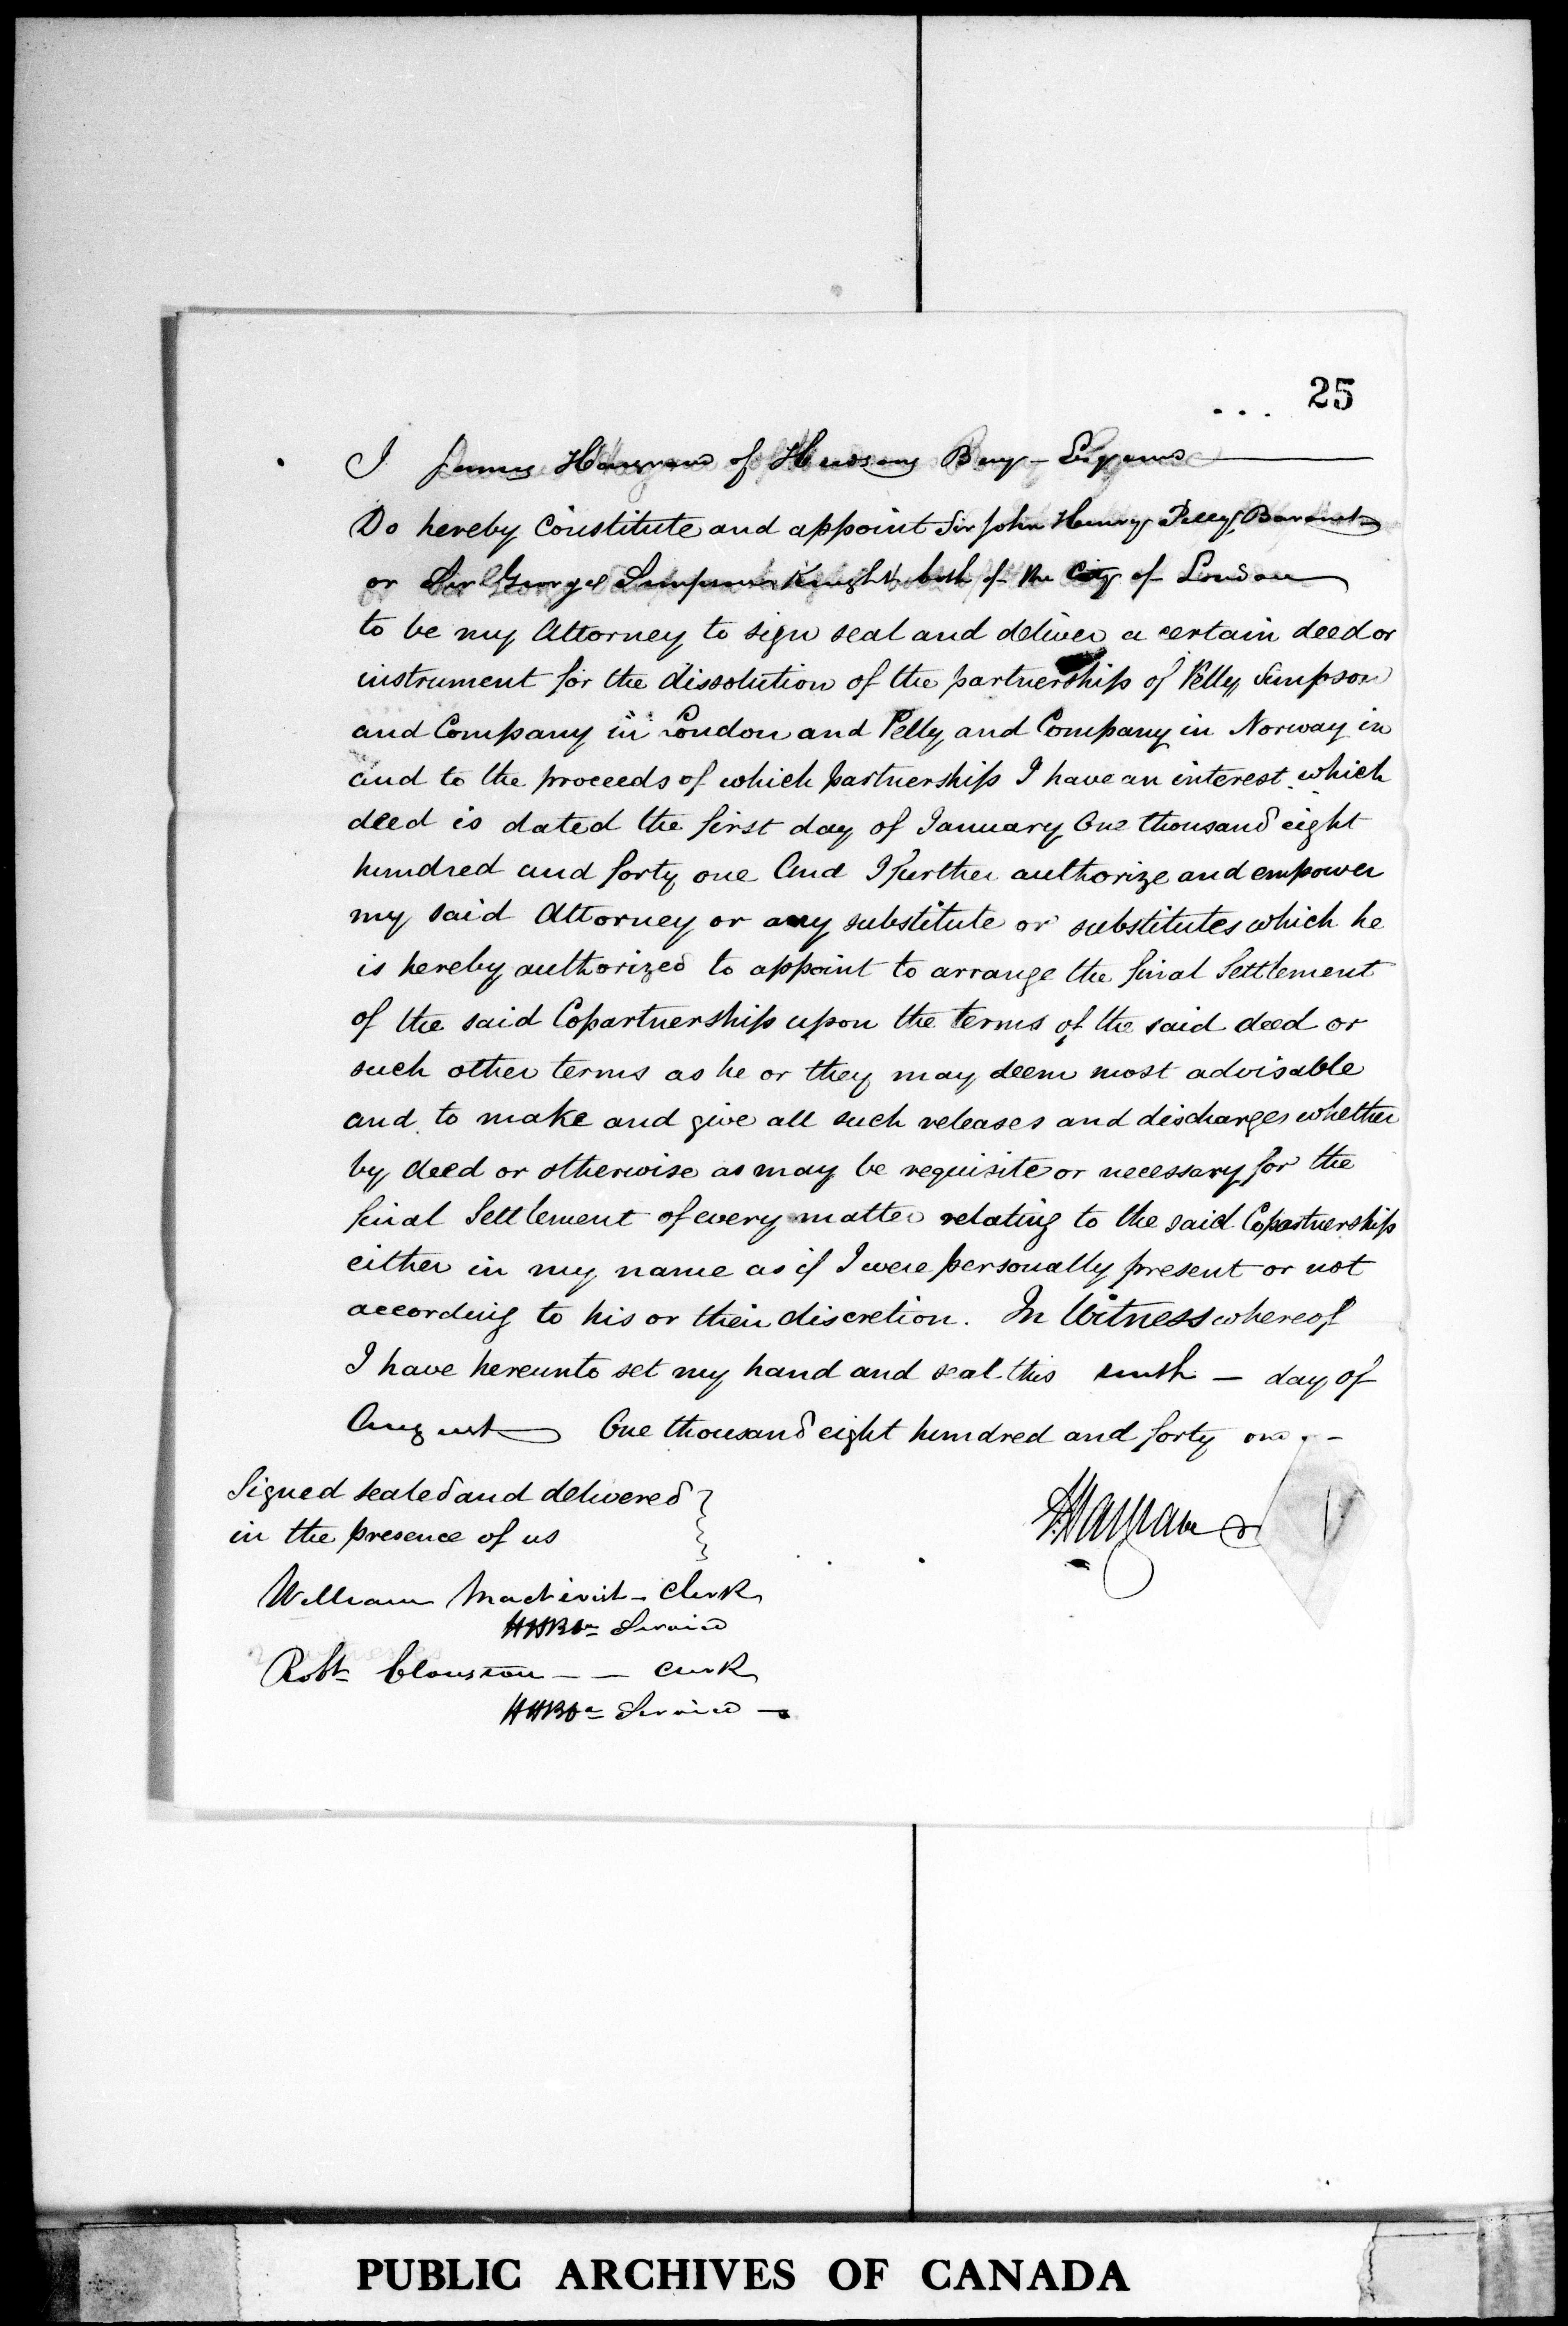 25
I James Hargrave of Hudsons Bay - Esquire
Do hereby Constitute and appoint Sir John Henry Pelly Baronet
or Sir George Simpson Knight both of the City of London
to be my Attorney to sign seal and deliver a certain deed or
instrument for the dissolution of the partnership of Pelly Simpson
and Company in London and Pelly and Company in Norway in
and to the proceeds of which partnership I have an interest which
deed is dated the first day of January One thousand eight
hundred and forty one And I further authorize and empower
my said Attorney or any substitute or substitutes which he
is hereby authorized to appoint to arrange the final Settlement
of the said Copartnership upon the terms of the said deed or
such other terms as he or they may deem most advisable
and to make and give all such releases and discharges whether
by deed or otherwise as may be requisite or necessary for the
final Settlement of every matter relating to the said Copartnership
either in my name as if I were personally present or not
according to his or their discretion. In Witness whereof
I have hereunto set my hand and seal this - day of
August One thousand eight hundred and forty one -
Signed sealed and delivered
in the presence of us
J. Hargrave
William Mactavish - Clerk
Service
Robt Clouston - - Clerk
Service -
PUBLIC ARCHIVES OF CANADA